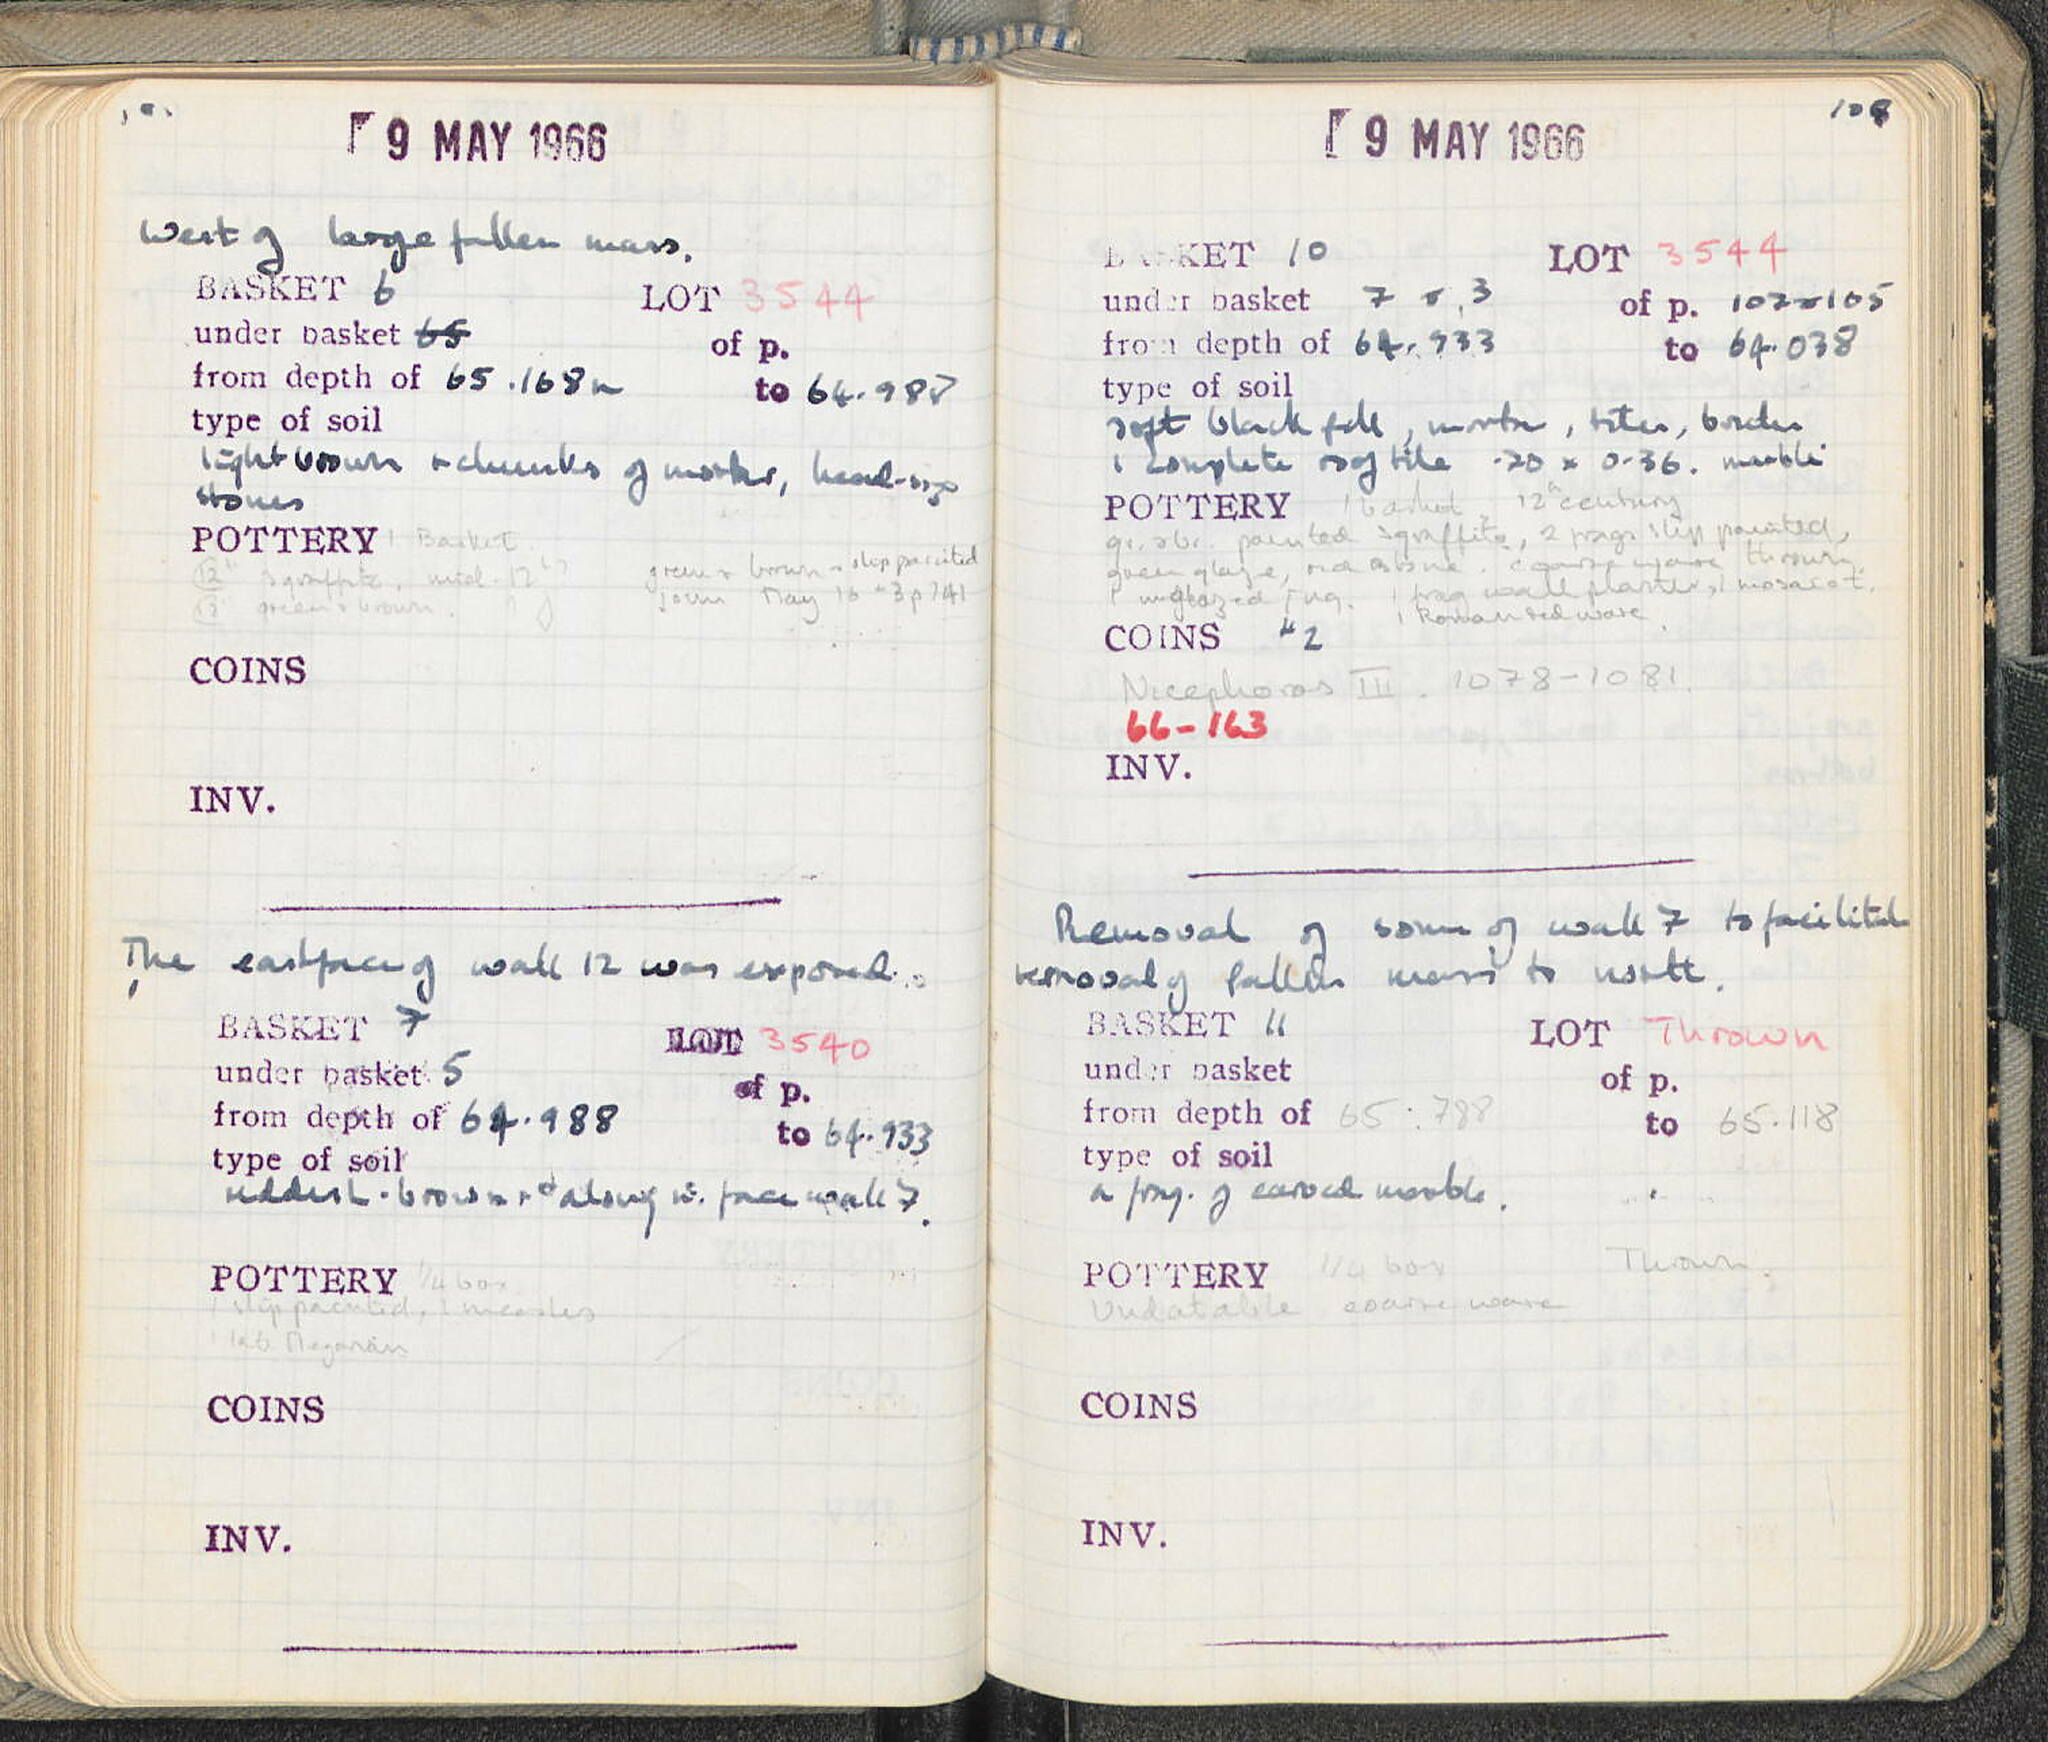 9 MAY 1966
West of large fallen mass.
BASKET 6 LOT 3544
under basket of p.
from depth of 65.168m to 64.987
type of soil
light brown + chunks of mortar, head-size
stones
POTTERY 1 Basket
12th sgraffito, mid-12th green + brown + slip painted
green + brown. join May 16 #3 p 141
COINS
INV.
The east face of wall 12 was exposed.
BASKET 7 LOT 3540
under basket 5 of p.
from depth of 64.988 to 64.933
type of soil
reddish-brown + along w. face wall 7.
POTTERY 1/4 box
1 slip painted, 1 measles
1 Megarian
COINS
INV.
108
9 MAY 1966
BASKET 10 LOT 3544
under basket 7 + 3 of p. 107 + 105
from depth of 64.933 to 64.038
type of soil
soft black fill, mortar, tiles,
1 complete roof tile .20 x 0.36. marble
POTTERY 1 basket 12th century
painted sgraffito, 2 frags slip painted,
green glaze, coarse ware thrown.
1 unglazed jug. 1 frag wall plaster, 1 mosaic t.
1 Roman red ware.
COINS #2
Nicephoros III. 1078-1081.
66-163
INV.
Removal of some of wall 7 to facilitate
removal of fallen mass to north.
BASKET 11 LOT Thrown
under basket of p.
from depth of 65.788 to 65.118
type of soil
a frag. of carved marble.
POTTERY 1/4 box Thrown.
Undatable coarse ware
COINS
INV.